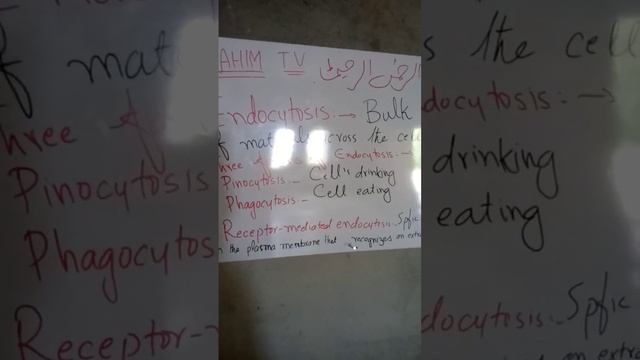 AHIM TV الرحمن الرحیم
Endocytosis:→ Bulk
of across the cell
three Endocytosis:→
Pinocytosis:- Cell's drinking
Phagocytosis:- Cell eating
Receptor-mediated endocytosis. Spfic
n the plasma membrane that recognizes an extra